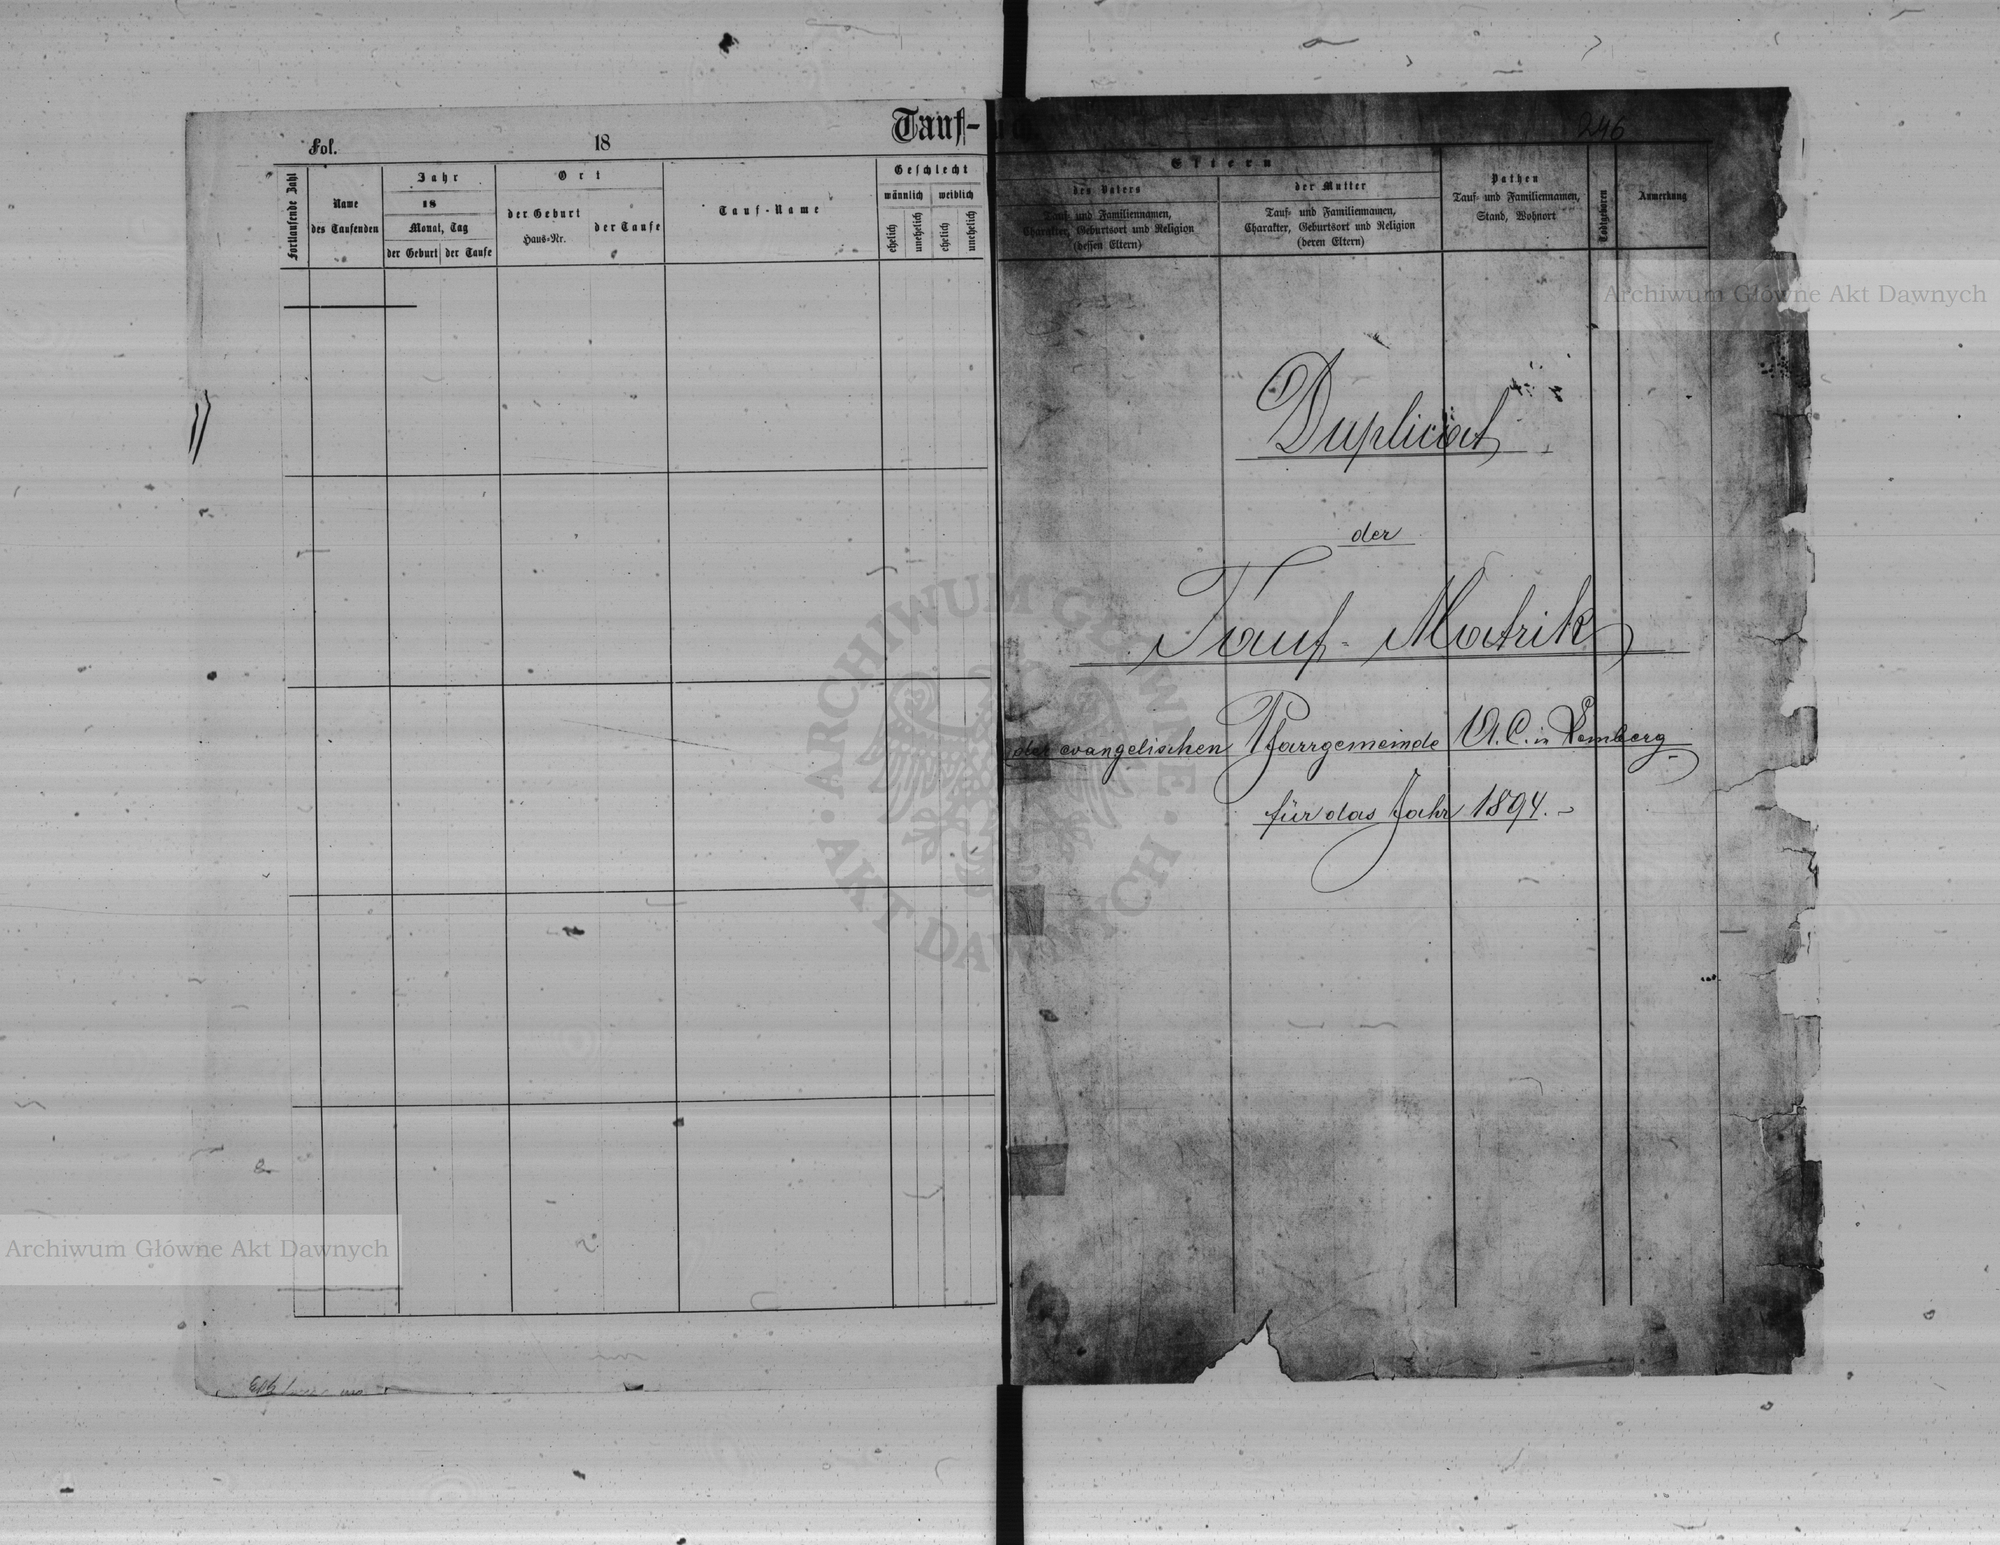 Fol.
18
Tauf-
246
Fortlaufende Zahl
Name
des Taufenden
Jahr
18
Monat, Tag
der Geburt
der Taufe
Ort
der Geburt
Haus-Nr.
der Taufe
Tauf-Name
Geschlecht
männlich
weiblich
ehelich
unehelich
ehelich
unehelich
Eltern
des Vaters
Tauf- und Familiennamen,
Charakter, Geburtsort und Religion
(dessen Eltern)
der Mutter
Tauf- und Familiennamen,
Charakter, Geburtsort und Religion
(deren Eltern)
Pathen
Tauf- und Familiennamen,
Stand, Wohnort
Todtgeboren
Anmerkung
Archiwum Główne Akt Dawnych
Duplicat
der
Tauf-Matrik
der evangelischen Pfarrgemeinde A. C. in Lemberg
für das Jahr 1894.
ARCHIWUM GŁÓWNE
AKT DAWNYCH
Archiwum Główne Akt Dawnych